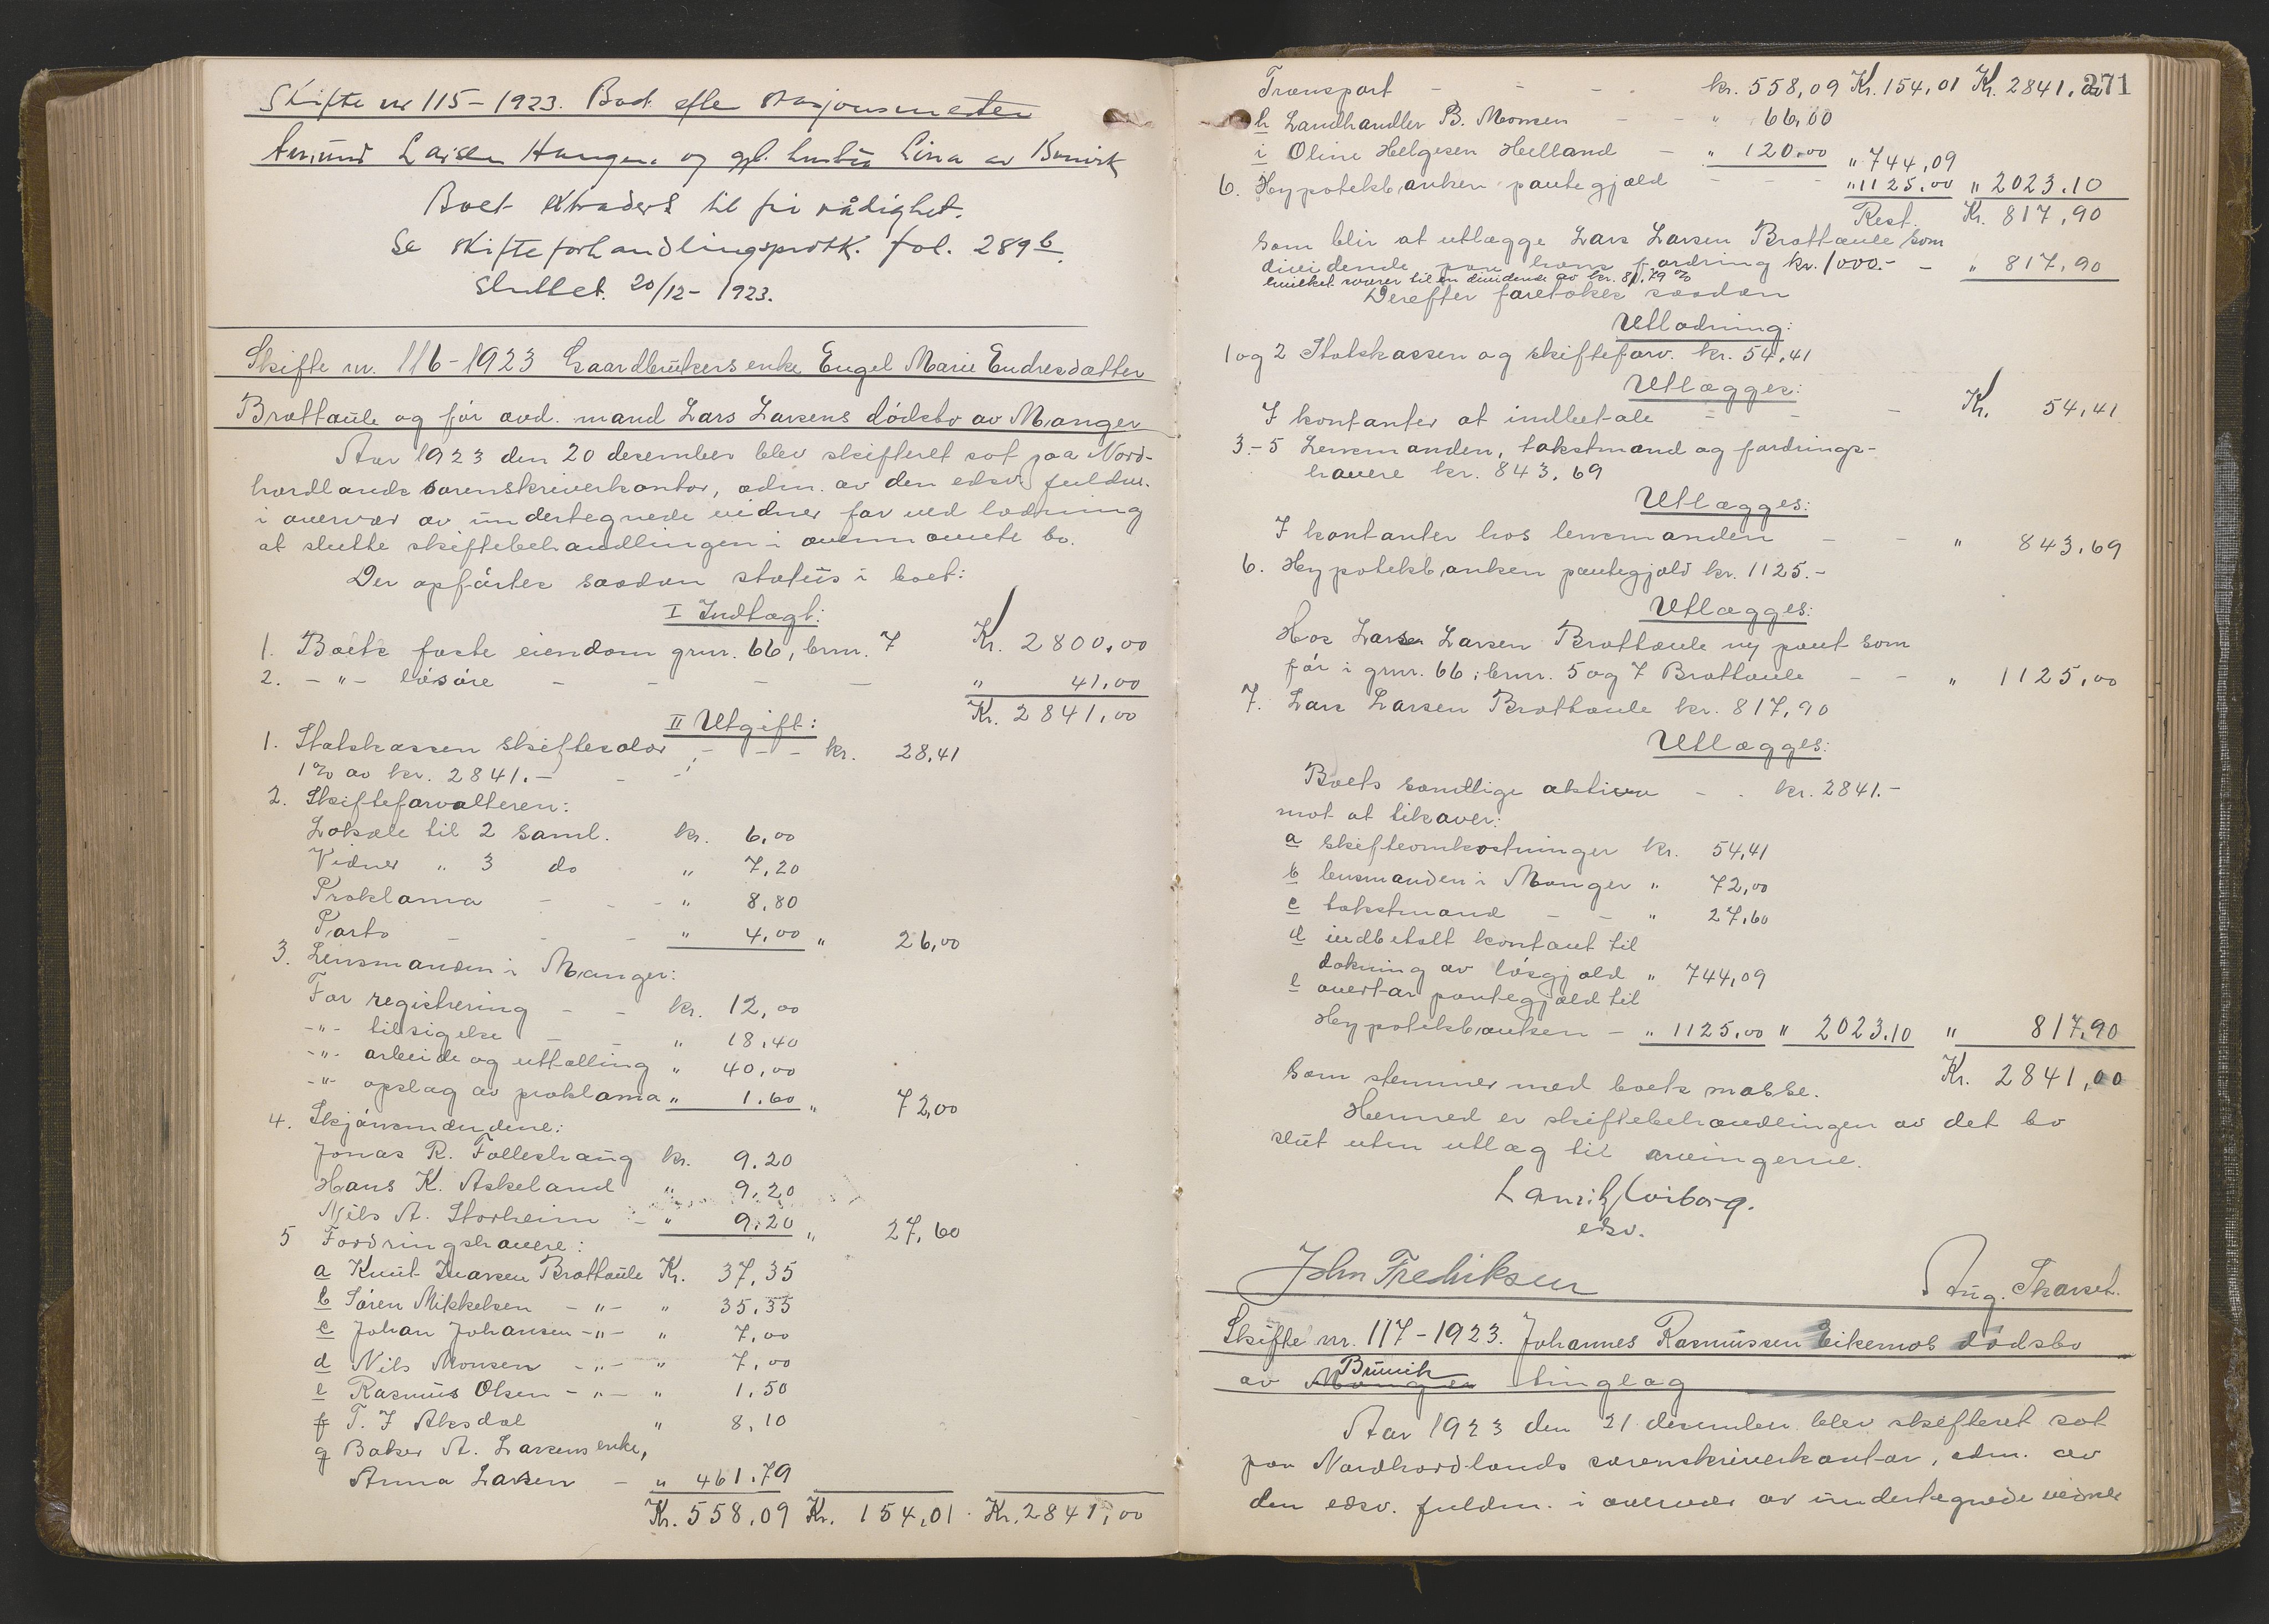 Skifte nr 115-1923. Boet efter stasjonsmester
Amund Larsen Haugen og gjl. hustru Lina av Bruvik
Boet extraderes til fri rådighet.
Se skifteforhandlingsprotk. fol. 289 b.
Sluttet 20/12-1923.
Skifte nr. 116-1923 Gaardbrukers enke Engel Marie Endresdatter
Brattaule og før avd. mand Lars Larsens dødsbo av Manger
Aar 1923 den 20 desember blev skifteret sat paa Nord-
hordlands sorenskriverkontor, adm. av den edsv. fuldm.
i overvær av undertegnede vidner for ved lodning
at slutte skiftebehandlingen i ovennævnte bo.
Der opførtes saadan status i boet:
I Indtægt:
1. Boets faste eiendom grnr. 66, brnr. 7 Kr. 2800,00
2. -"- løsøre - - - - " 41,00
Kr. 2841,00
II Utgift:
1. Statskassen skiftesalær - - - kr. 28,41
1% av kr. 2841.- - -
2. Skifteforvalteren:
Lokale til 2 saml. kr. 6,00
Vidner " 3 do " 7,20
Proklama - - - " 8,80
Porto - - - " 4,00 " 26,00
3. Lensmanden i Manger:
For registrering - - kr. 12,00
-"- tilsigelse - - " 18,40
-"- arbeide og uttælling " 40,00
-"- opslag av proklama " 1.60 " 72,00
4. Skjønsmændene:
Jonas R. Folleshaug kr. 9.20
Hans K. Askeland " 9,20
Nils A. Storheim - " 9,20 " 27,60
5 Fordringshavere:
a Knut Ivarsen Brattaule Kr. 37,35
b Søren Mikkelsen -"- " 35,35
c Johan Johansen -"- " 7,00
d Nils Monsen -"- " 7,00
e Rasmus Olsen -"- " 1,50
f T. J Aksdal " 8,10
g Baker A. Larsens enke,
Anna Larsen - " 461.79
Kr. 558,09 Kr. 154,01. Kr. 2841,00
271
Transport - - - kr. 558,09 Kr. 154,01 Kr. 2841,00
h Landhandler B. Monsen - - " 66,00
i Oline Helgesen Helland - " 120,00 " 744,09
6. Hypotekbanken pantegjæld - - - " 1125,00 " 2023.10
Rest. Kr. 817,90
som blir at utlægge Lars Larsen Brattaule som
dividende paa hans fordring kr. 1000.- - " 817,90
hvilket svarer til en dividende av kr. 81,79 %
Derefter foretokes saadan
Utlodning:
1 og 2 Statskassen og skifteforv. kr. 54,41
Utlægges:
I kontanter at indbetale - - - Kr. 54,41
3-5 Lensmanden, takstmænd og fordrings-
havere kr. 843,69
Utlægges:
I kontanter hos lensmanden - - " 843,69
6. Hypotekbanken pantegjæld kr. 1125.-
Utlægges:
Hos Lars Larsen Brattaule ny pant som
før i grnr. 66, brnr. 5 og 7 Brattaule - - " 1125,00
7. Lars Larsen Brattaule kr. 817,90
Utlægges:
Boets samtlige aktiva - - kr. 2841.-
mot at tilsvare:
a skifteomkostninger kr. 54,41
b lensmanden i Manger " 72,00
c takstmænd - - " 27,60
d indbetalt kontant til
dækning av løsgjæld " 744,09
e overtar pantegjæld til
Hypotekbanken - " 1125,00 " 2023.10 " 817,90
som stemmer med boets masse. Kr. 2841,00
Hermed er skiftebehandlingen av det bo
slut uten utlæg til arvingerne.
Lauritz Wiborg.
edsv.
John Fredriksen Aug. Skarset.
Skifte nr. 117-1923. Johannes Rasmussen Eikemos dødsbo
av Manger Bruvik tinglag
Aar 1923 den 21 desember blev skifteret sat
paa Nordhordlands sorenskriverkontor, adm. av
den edsv. fuldm. i overvær av undertegnede vidner